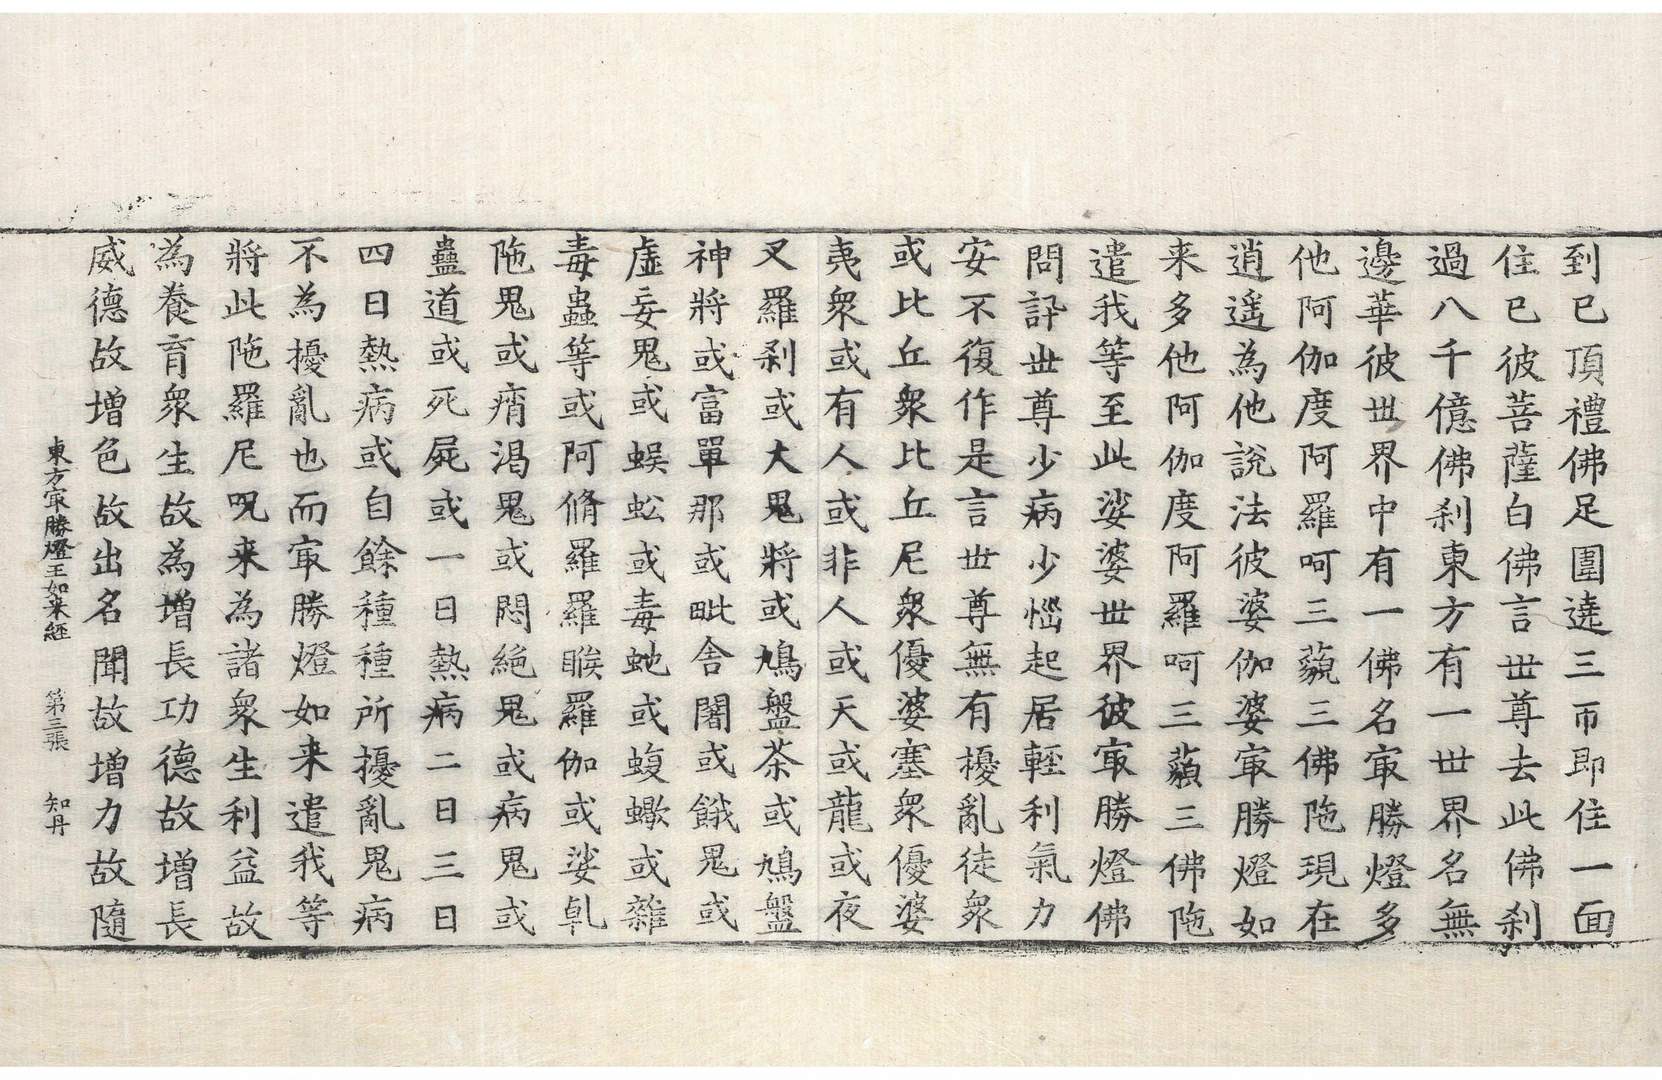 到已頂禮佛足圍遶三帀即住一面
住已彼菩薩白佛言世尊去此佛剎
過八千億佛剎東方有一世界名無
邊華彼世界中有一佛名㝡勝燈多
他阿伽度阿羅呵三藐三佛陁現在
逍遥為他說法彼婆伽婆㝡勝燈如
来多他阿伽度阿羅呵三藐三佛陁
遣我等至此娑婆世界彼㝡勝燈佛
問訊世尊少病少惱起居輕利氣力
安不復作是言世尊無有擾亂徒衆
或比丘衆比丘尼衆優婆塞衆優婆
夷衆或有人或非人或天或龍或夜
叉羅剎或大鬼將或鳩盤茶或鳩盤
神將或富單那或毗舍闍或餓鬼或
虛妄鬼或蜈蚣或毒虵或蝮蠍或雜
毒蟲等或阿脩羅羅睺羅伽或娑乹
陁鬼或痟渴鬼或悶絕鬼或病鬼或
蠱道或死屍或一日熱病二日三日
四日熱病或自餘種種所擾亂鬼病
不為擾亂也而㝡勝燈如来遣我等
將此陁羅尼呪来為諸衆生利益故
為養育衆生故為增長功德故增長
威德故增色故出名聞故增力故隨
東方㝡勝燈王如来経 第三張 知丹